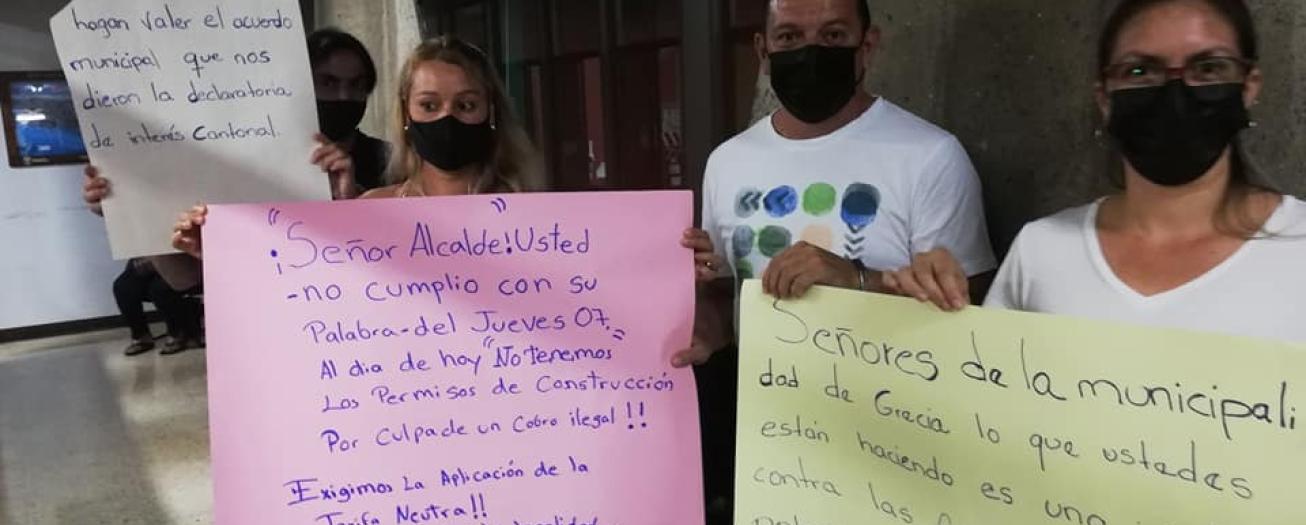 hagan valer el acuerdo
municipal que nos
dieron la declaratoria
de interés Cantonal.
"¡Señor Alcalde!"Usted
-no cumplio con su
Palabra-del Jueves 07."
Al dia de hoy "No tenemos
Los Permisos de Construcción
Por Culpa de un Cobro ilegal!!
Exigimos La Aplicación de la
Tarifa Neutra!!
Señores de la municipali
dad de Grecia lo que ustedes
están haciendo es una
contra las